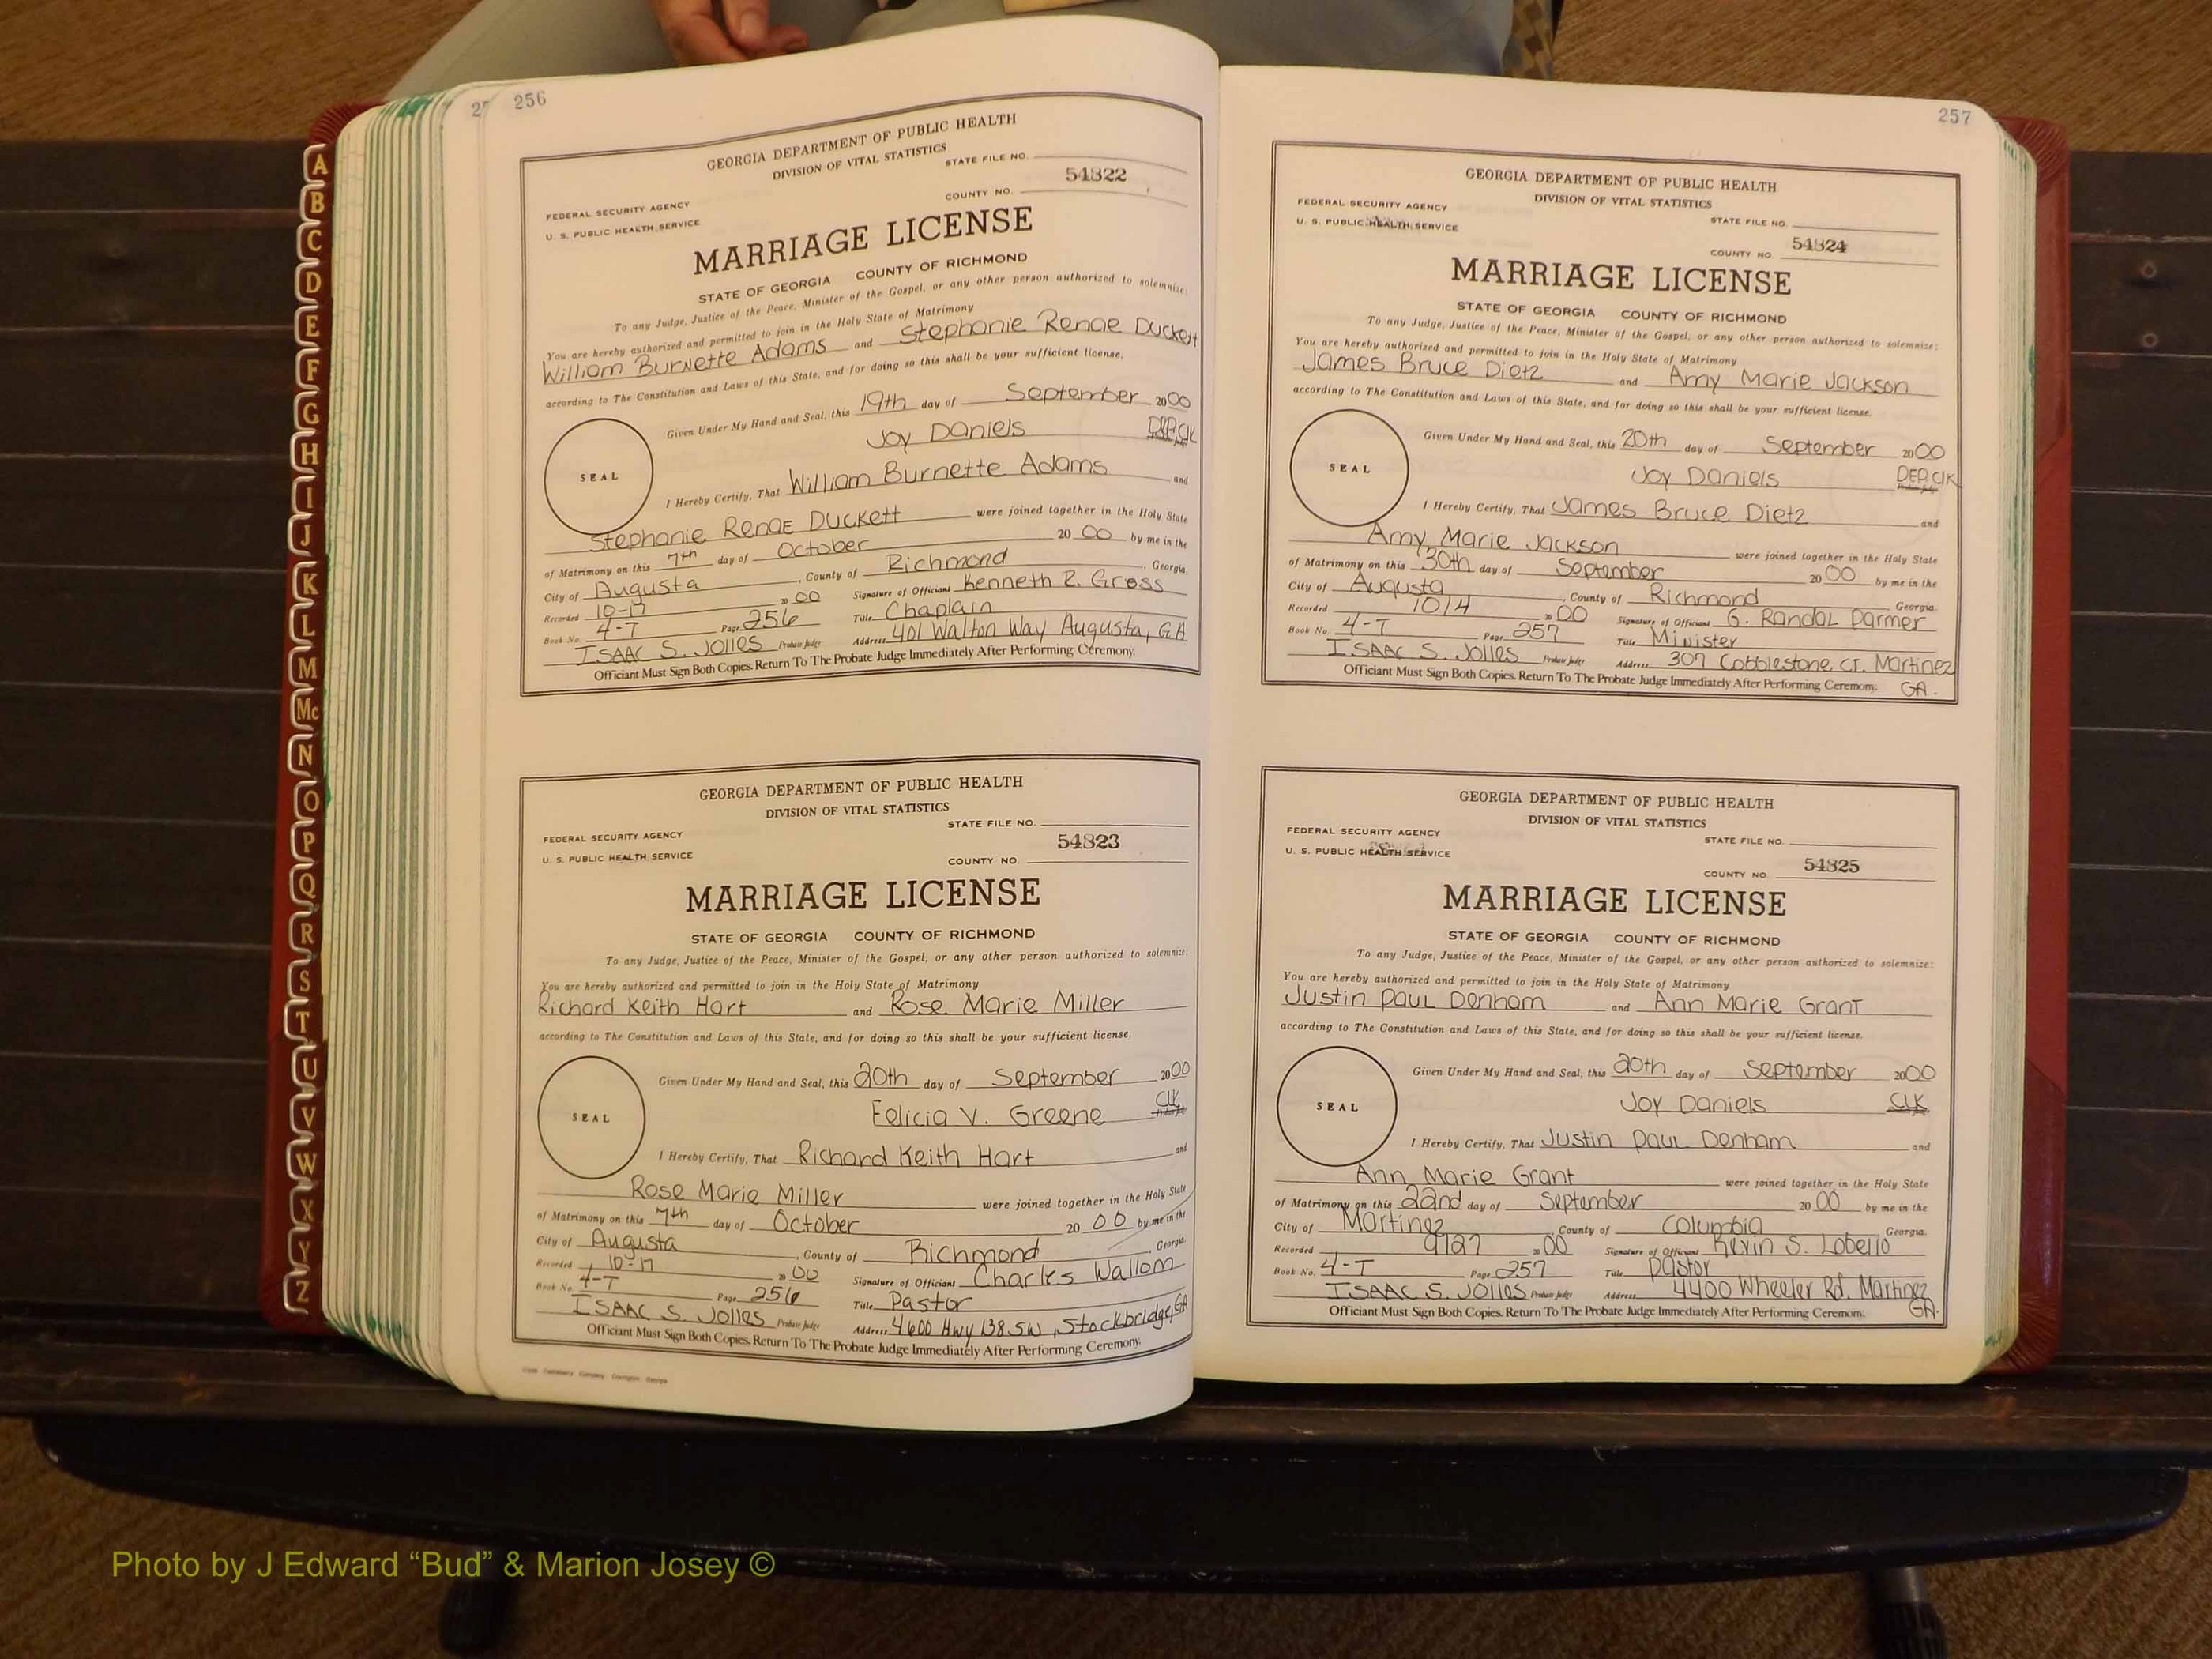 256
GEORGIA DEPARTMENT OF PUBLIC HEALTH
DIVISION OF VITAL STATISTICS
STATE FILE NO.
54822
COUNTY NO.
FEDERAL SECURITY AGENCY
U. S. PUBLIC HEALTH SERVICE
MARRIAGE LICENSE
STATE OF GEORGIA COUNTY OF RICHMOND
To any Judge, Justice of the Peace, Minister of the Gospel, or any other person authorized to solemnize:
You are hereby authorized and permitted to join in the Holy State of Matrimony
William Burnette Adams and Stephanie Renae Duckett
according to The Constitution and Laws of this State, and for doing so this shall be your sufficient license.
Given Under My Hand and Seal, this 19th day of September 2000
Joy Daniels DEP.Clk
SEAL
I Hereby Certify, That William Burnette Adams and
Stephanie Renae Duckett were joined together in the Holy State
of Matrimony on this 7th day of October 20 00 by me in the
City of Augusta, County of Richmond, Georgia.
Recorded 10-17 20 00 Signature of Officiant Kenneth R. Gross
Book No. 4-T Page 256 Title Chaplain
ISAAC S. Jolles Probate Judge Address 401 Walton Way Augusta, GA
Officiant Must Sign Both Copies. Return To The Probate Judge Immediately After Performing Ceremony.
GEORGIA DEPARTMENT OF PUBLIC HEALTH
DIVISION OF VITAL STATISTICS
STATE FILE NO.
FEDERAL SECURITY AGENCY
54823
U. S. PUBLIC HEALTH SERVICE
COUNTY NO.
MARRIAGE LICENSE
STATE OF GEORGIA COUNTY OF RICHMOND
To any Judge, Justice of the Peace, Minister of the Gospel, or any other person authorized to solemnize:
You are hereby authorized and permitted to join in the Holy State of Matrimony
Richard Keith Hart and Rose Marie Miller
according to The Constitution and Laws of this State, and for doing so this shall be your sufficient license.
Given Under My Hand and Seal, this 20th day of September 2000
Felicia V. Greene Clk
SEAL
I Hereby Certify, That Richard Keith Hart and
Rose Marie Miller were joined together in the Holy State
of Matrimony on this 7th day of October 20 00 by me in the
City of Augusta, County of Richmond, Georgia.
Recorded 10-17 20 00 Signature of Officiant Charles Wallom
Book No. 4-T Page 256 Title Pastor
ISAAC S. Jolles Probate Judge Address 4600 Hwy 138 SW, Stockbridge, GA
Officiant Must Sign Both Copies. Return To The Probate Judge Immediately After Performing Ceremony.
257
GEORGIA DEPARTMENT OF PUBLIC HEALTH
DIVISION OF VITAL STATISTICS
FEDERAL SECURITY AGENCY
STATE FILE NO.
U. S. PUBLIC HEALTH SERVICE
54824
COUNTY NO.
MARRIAGE LICENSE
STATE OF GEORGIA COUNTY OF RICHMOND
To any Judge, Justice of the Peace, Minister of the Gospel, or any other person authorized to solemnize:
You are hereby authorized and permitted to join in the Holy State of Matrimony
James Bruce Dietz and Amy Marie Jackson
according to The Constitution and Laws of this State, and for doing so this shall be your sufficient license.
Given Under My Hand and Seal, this 20th day of September 2000
Joy Daniels DEP.Clk
SEAL
I Hereby Certify, That James Bruce Dietz and
Amy Marie Jackson were joined together in the Holy State
of Matrimony on this 30th day of September 20 00 by me in the
City of Augusta, County of Richmond, Georgia.
Recorded 10/4 20 00 Signature of Officiant G. Randal Parmer
Book No. 4-T Page 257 Title Minister
ISAAC S. Jolles Probate Judge Address 307 Cobblestone Ct. Martinez
Officiant Must Sign Both Copies. Return To The Probate Judge Immediately After Performing Ceremony. GA.
GEORGIA DEPARTMENT OF PUBLIC HEALTH
DIVISION OF VITAL STATISTICS
FEDERAL SECURITY AGENCY
STATE FILE NO.
U. S. PUBLIC HEALTH SERVICE
54825
COUNTY NO.
MARRIAGE LICENSE
STATE OF GEORGIA COUNTY OF RICHMOND
To any Judge, Justice of the Peace, Minister of the Gospel, or any other person authorized to solemnize:
You are hereby authorized and permitted to join in the Holy State of Matrimony
Justin Paul Denham and Ann Marie Grant
according to The Constitution and Laws of this State, and for doing so this shall be your sufficient license.
Given Under My Hand and Seal, this 20th day of September 2000
Joy Daniels CLK
SEAL
I Hereby Certify, That Justin Paul Denham and
Ann Marie Grant were joined together in the Holy State
of Matrimony on this 22nd day of September 20 00 by me in the
City of Martinez, County of Columbia, Georgia.
Recorded 9/27 20 00 Signature of Officiant Kevin S. Lobello
Book No. 4-T Page 257 Title Pastor
ISAAC S. Jolles Probate Judge Address 4400 Wheeler Rd. Martinez
Officiant Must Sign Both Copies. Return To The Probate Judge Immediately After Performing Ceremony. GA.
A
B
C
D
E
F
G
H
I
J
K
L
M
Mc
N
O
P
Q
R
S
T
U
V
W
X
Y
Z
Photo by J Edward “Bud” & Marion Josey ©